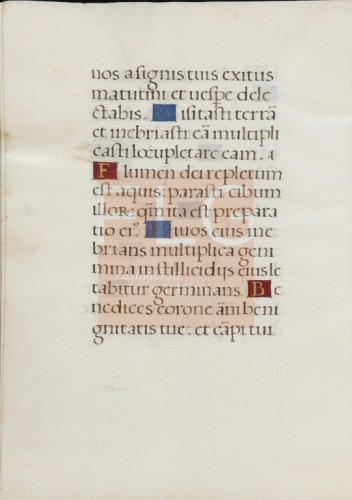 nos a signis tuis exitus
matutini et uespe dele
ctabis. Visitasti terrã
et inebriasti eã multipli
casti locupletare eam.
Flumen dei repletum
est aquis: parasti cibum
illoꝝ: qm̃ ita est prepara
tio eiꝰ. Riuos eius ine
brians multiplica geni
mina in stillicidijs eius le
tabitur germinans. Be
nedices corone ãni beni
gnitatis tue: et cãpi tui